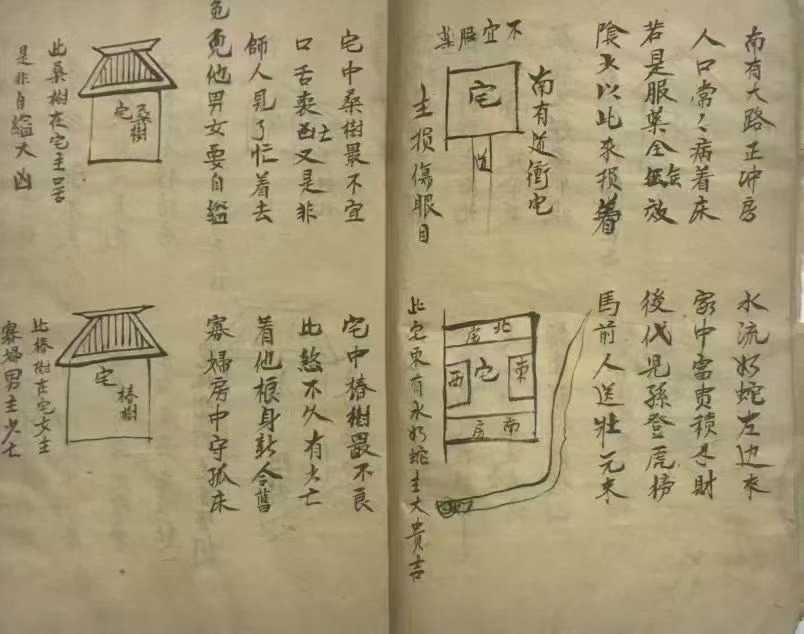 南有大路正冲房
人口常々病着床
若是服藥全無效
陰
南有道衝宅
宅
道
不宜服藥
主損傷眼目
水流如蛇左边来
家中富貴積多財
後代児孫登虎榜
馬前人送壮元来
北房
東
宅
西
南房
此宅東有水如蛇主大貴吉
宅中桑樹最不宜
口舌喪凶又是非
師人見了忙着去
免他男女要自縊
桑樹
宅
此桑樹在宅主口舌
是非自縊大凶
宅中椿樹最不良
此煞不久有少亡
着他根身新合舊
寡婦房中守孤床
椿樹
宅
此椿樹在宅女主
寡婦男主少亡